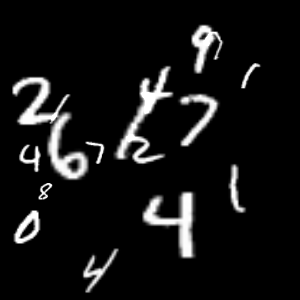 9 7 1
2 1 4 7
4 6 7 2
8 1
0 4
4